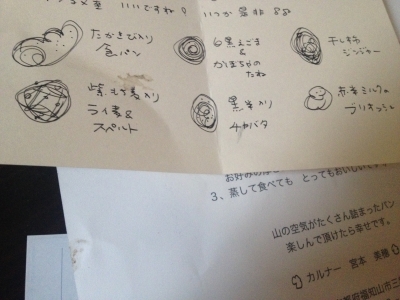 いいですね!
いつか是非
たかきび入り
食パン
白黒えごま
&
かぼちゃの
たね
干し柿
ジンジャー
紫もち麦入り
ライ麦&
スペルト
黒米入り
チャバタ
赤米ミルクの
ブリオッシュ
3、蒸して食べても とってもおいしいです
山の空気がたくさん詰まったパン
楽しんで頂けたら幸せです。
カルナー 宮本 美穂